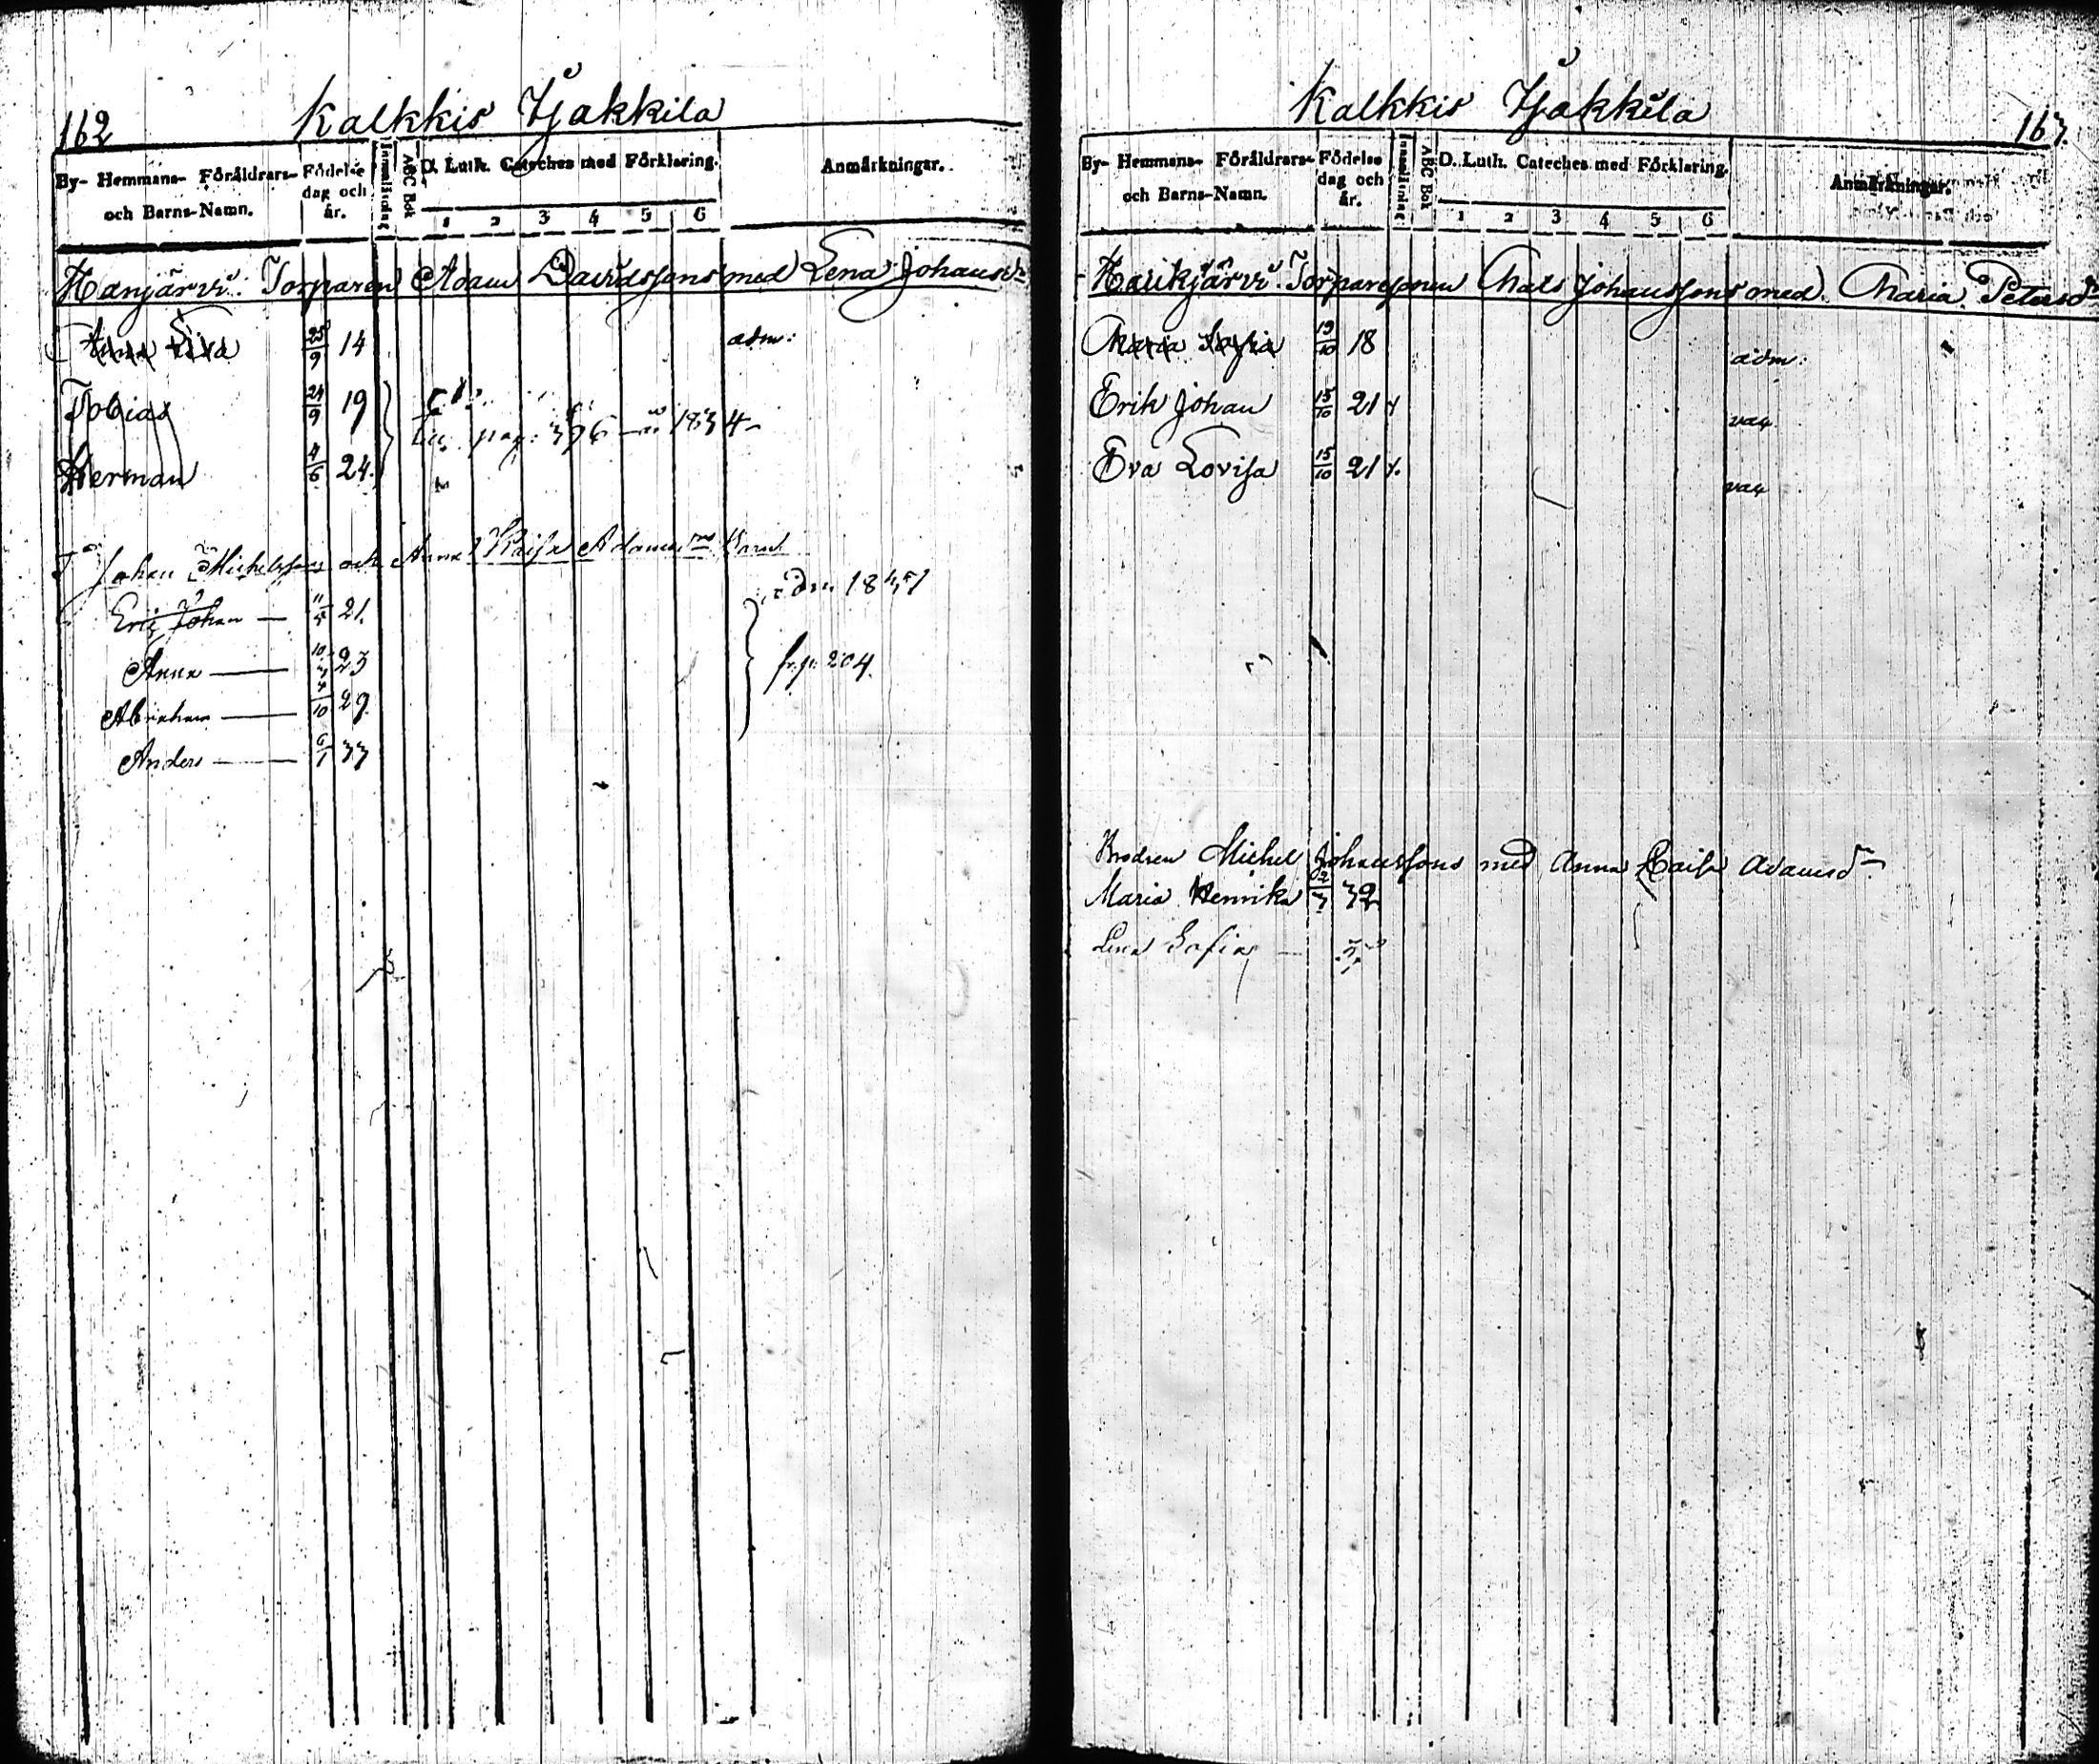 162
Kalkkis Tjakkila
By- Hemmans- Föräldrars- och Barns-Namn.
Födelse dag och år.
ABC Bok
D. Luth. Cateches med Förklaring.
1 2 3 4 5 6
Anmärkningar.
Torparen Adam Davidssons med Lena Johansdr
Anna Lisa 25/9 14 adm:
Tobias 24/9 19
till pag: 396 1834
Herman 4/6 24.
Johan Michelssons och Anna Kaisa Adamsdrs Barn
Eric Johan — 11/5 21.
Anna — 10/3 23
fr. p. 204.
Abraham — 4/10 29
Anders — 6/1 33
Kalkkis Tjakkila
163.
By- Hemmans- Föräldrars- och Barns-Namn.
Födelse dag och år.
ABC Bok
D. Luth. Cateches med Förklaring.
1 2 3 4 5 6
Anmärkningar.
Torparesonen Mats Johanssons med Maria Petersdr
Maria Sofia 19/10 18 adm:
Erik Johan 15/10 21 vac.
Eva Lovisa 15/10 21 vac
Brodren Michel Johanssons med Anna Caisa Adamsdr
Maria Henrika 2/3 32
Lena Sofia —